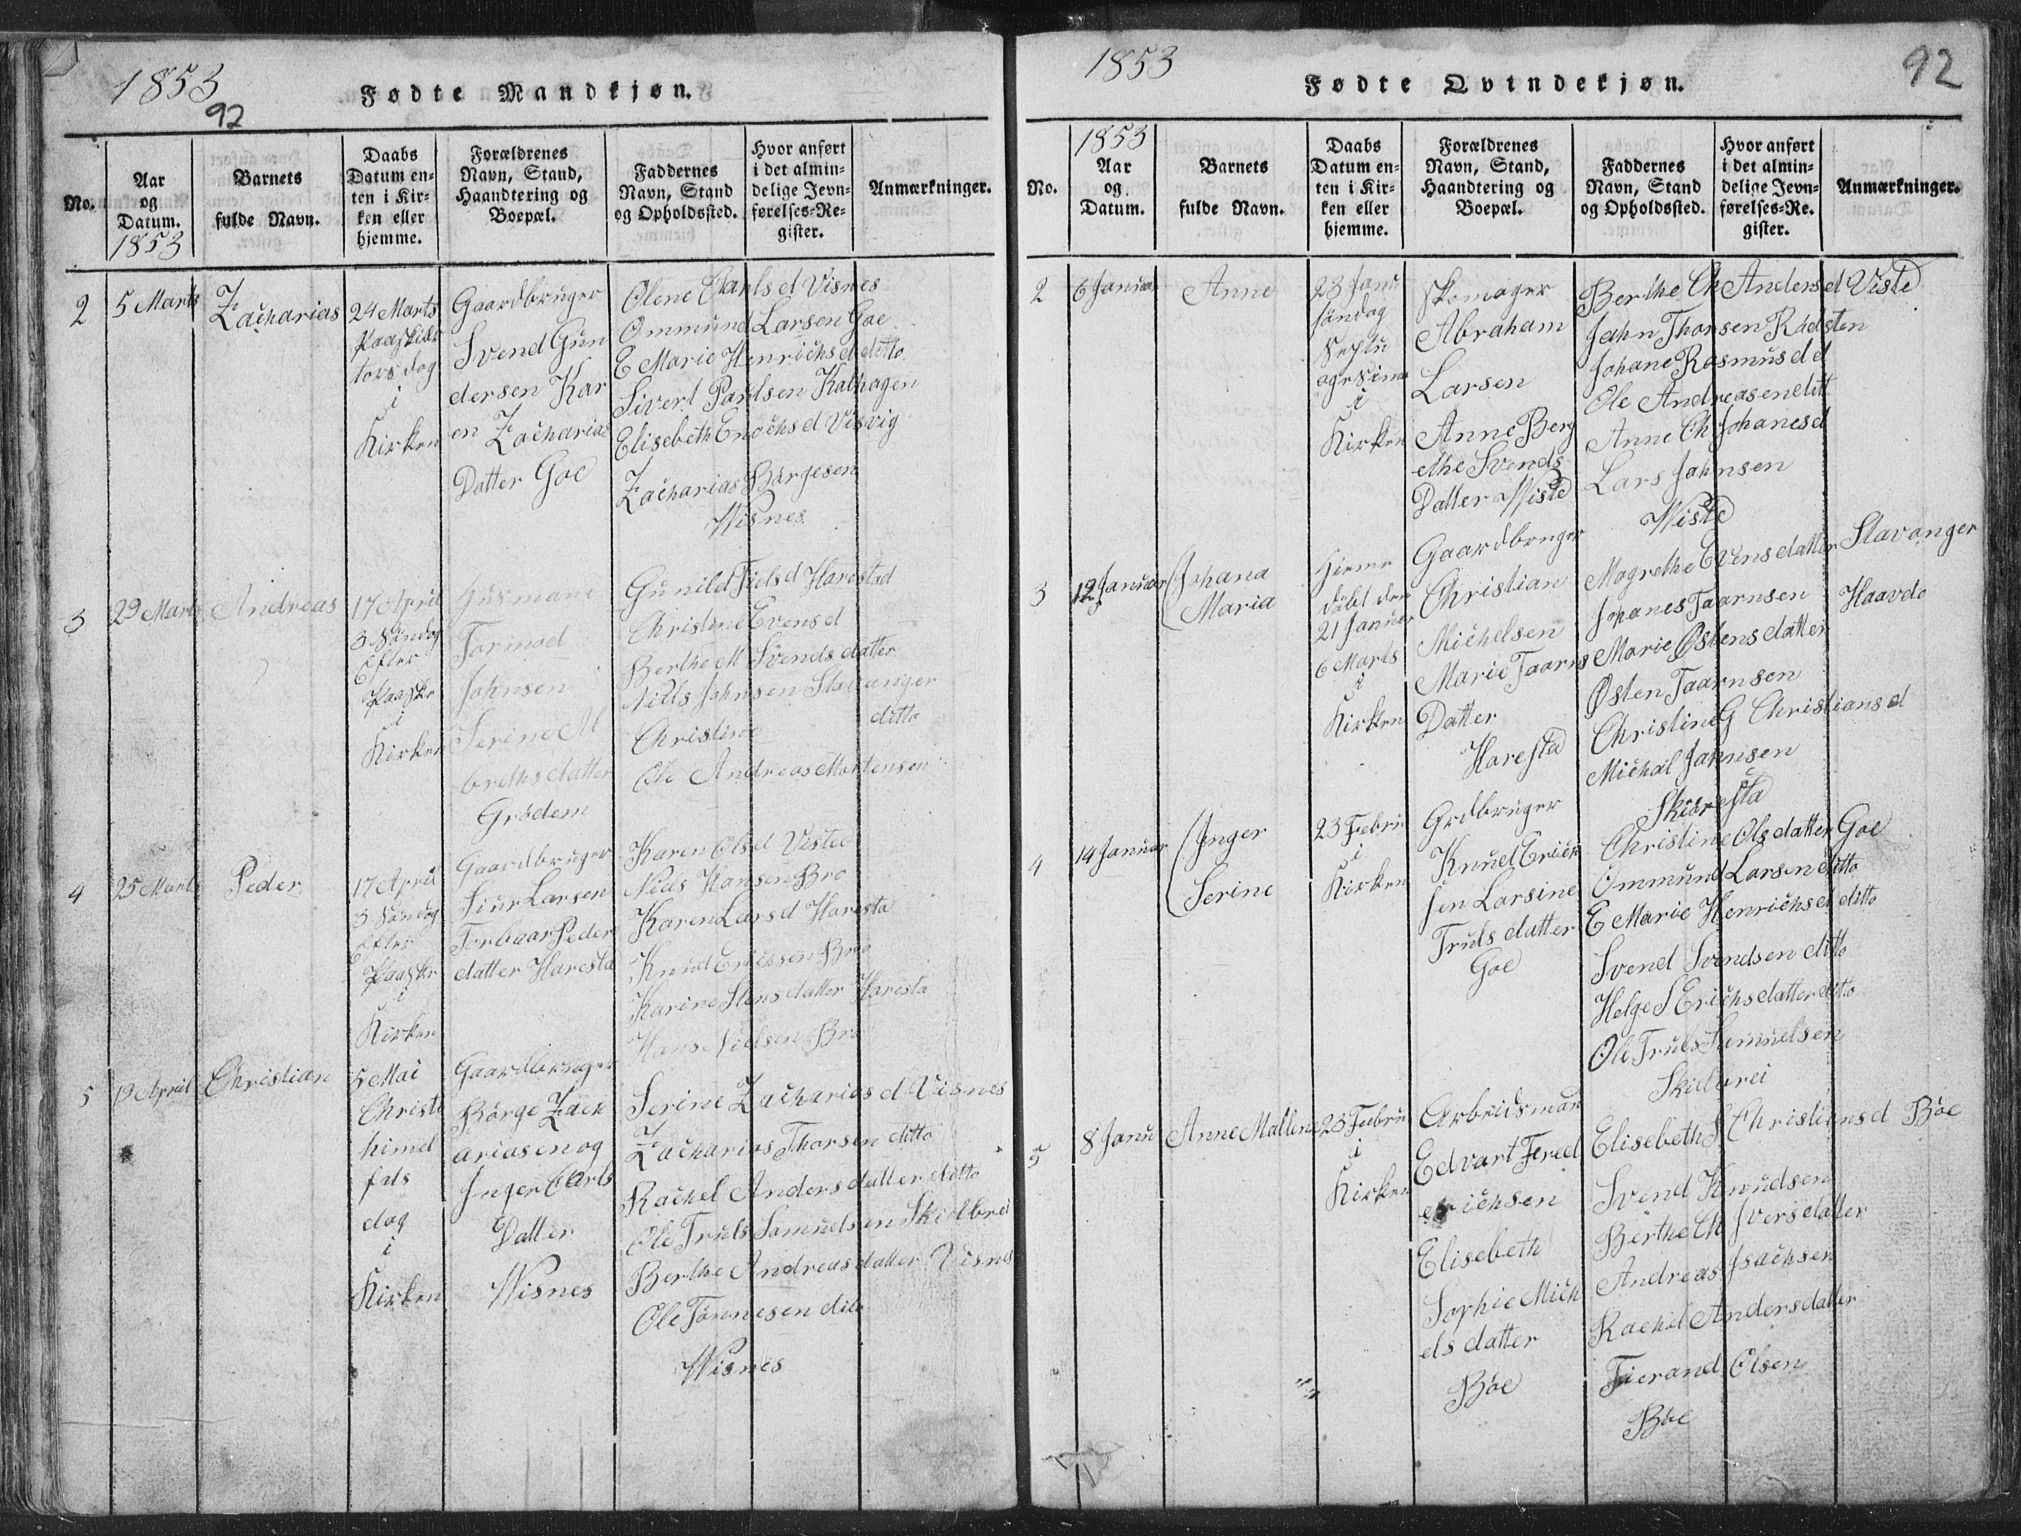 1853
92
Fødte Mandkjøn.
No.
Aar
og
Datum.
1853
Barnets
fulde Navn.
Daabs
Datum en-
ten i Kir-
ken eller
hjemme.
Forældrenes
Navn, Stand,
Haandtering og
Boepæl.
Faddernes
Navn, Stand
og Opholdssted.
Hvor anført
i det almin-
delige Jevn-
førelses-Re-
gister.
Anmærkninger.
2
5 Marts
Zacharias
24 Marts
tors dag
i
Kirken
Gaardbruger
Svend Gun
dersen Kar
en Zacharias
Datter Goe
Olene Carls d Visnes
Ommund Larsen Goe
E Marie Henrichs d ditto
Sivert Paulsen
Elisebeth Enochs d Visvig
Zacharias Børgesen
Wisnes
3
29 Marts
Andreas
17 April
3 Søndag
Efter
Paaske
i
Kirken
Husmand
Tormod
Johnsen
Serine
breths datter
Grødem
Gunild d Harestad
Christine Evens d
Berthe M Svends datter
Nills Johnsen Stavanger
Christine ditto
Ole Andreas Mortensen
4
25 Marts
Peder
17 April
3 Søndag
Efter
Paaske
i
Kirken
Gaardbruger
Siur Larsen
Torbaar Peder
datter Haresta
Karen Ols d Viste
Niels Hansen Bro
Karen Lars d Haresta
Knud Erichsen Bro
Karine Stens datter Haresta
Hans Nielsen Bro
5
19 April
Christian
5 Mai
Christi
himel
farts
dag
i
Kirken
Gaardbruger
Børge Zach
ariasen og
Inger Carls
Datter
Wisnes
Serine Zacharias d Visnes
Zacharias Thorsen ditto
Rachel Anders datter ditto
Ole Truls Samuelsen Skielbrei
Berthe Andreas datter Visnes
Ole Tønnesen dito
Wisnes
1853
92
Fødte Qvindekjøn.
No.
1853
Aar
og
Datum.
Barnets
fulde Navn.
Daabs
Datum en-
ten i Kir-
ken eller
hjemme.
Forældrenes
Navn, Stand,
Haandtering og
Boepæl.
Faddernes
Navn, Stand
og Opholdssted.
Hvor anført
i det almin-
delige Jevn-
førelses-Re-
gister.
Anmærkninger.
2
6 Januar
Anne
23 Janu
Søndag
Septu
agesima
i
Kirken
Skomager
Abraham
Larsen
Anne Berg
ethe Svends
Datter Wiste
Berthe Ch Anders d Viste
Jahn Thorsen Rødsten
Johane Rasmus d d
Ole Andreasen ditt
Anne Ch Johanes d
Lars Jahnsen
Wiste
3
12 Januar
Johana
Maria
Hieme
døbt den
21 Januar
6 Marts
i
Kirken
Gaardbruger
Christian
Michelsen
Marie Taarns
Datter
Haresta
Magrethe Evens datter Stavanger
Johanes Taarnsen Haavde
Marie Østens datter
Østen Taarnsen
Christine G Christians d
Michal Jahnsen
Skiøresta
4
14 Januar
Inger
Serine
23 Febru
i
Kirken
Grdbruger
Knud Erich
sen Larsine
Truls datter
Goe
Christine Ols datter Goe
Ommund Larsen ditto
E Marie Henrichs d ditto
Svend Svendsen ditto
Helge S Erichs datter ditto
Ole Truls Samuelsen
Skielbrei
5
8 Janu
Anne Mallene
23 Febru
i
Kirken
Arbeidsmand
Edvart Fred
erichsen
Elisebeth
Sophie Mich
els datter
Bøe
Elisebeth S Christians d Bøe
Svend Knudsen
Berthe Ch Ivers datter
Andreas Isachsen
Rachel Anders datter
Tierand Olsen
Bøe